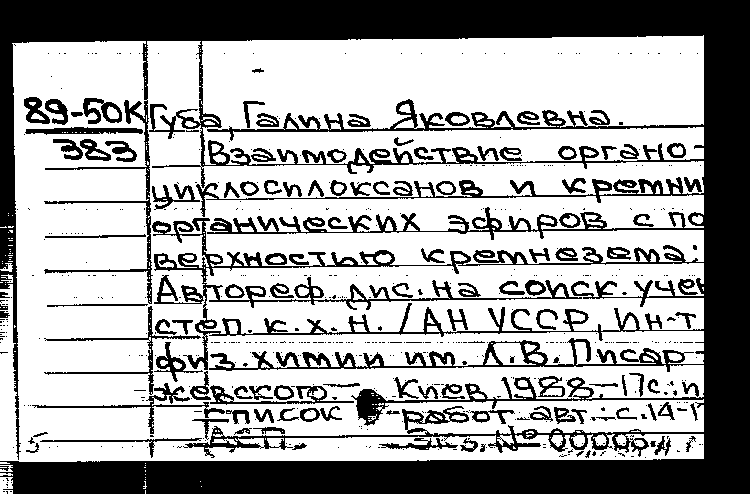 89-50К Губа, Галина Яковлевна.
383 Взаимодействие органо-
циклосилоксанов и кремни
органических эфиров с по
верхностью кремнезема:
Автореф. дис. на соиск. учен
степ. к. х. н. / АН УССР, Ин-т
физ. химии им. Л.В. Писар-
жевского. – Киев, 1988. – 17с.: и
Список работ авт.: с. 14-1
ДСП. Экз. № 00005.
5